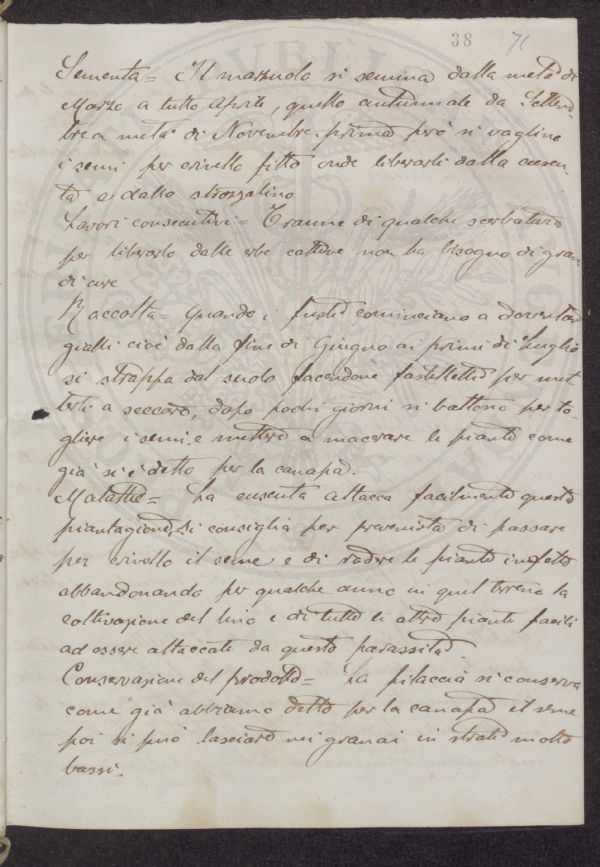 38 71
Sementa = Il marzuolo si semina dalla metà di
Marzo a tutto Aprile, quello autunnale da Settem-
bre a metà di Novembre. prima però si vaglino
i semi per crivello fitto onde liberarli dalla cuscu-
ta e dallo strozzalino
Lavori consecutivi = Tranne di qualche scerbatura
per liberarlo dalle erbe cattive non ha bisogno di gran
di cure
Raccolta = Quando i fusti cominciano a doventar
gialli cioè dalla fine di Giugno ai primi di Luglio
si strappa dal suolo facendone fastelletti per met
terli a seccare, dopo pochi giorni si battono per to-
gliere i semi e mettere a macerare le piante come
già si è detto per la canapa.
Malattie = La cuscuta attacca facilmente questa
piantagione. Si consiglia per prevenirla di passare
per crivello il seme e di radere le piante infette
abbandonando per qualche anno in quel terreno la
coltivazione del lino e di tutte le altre piante facili
ad essere attaccate da questo parassita
Conservazione del prodotto = La filaccia si conserva
come già abbiamo detto per la canapa el seme
poi si può lasciare nei granai in strati molto
bassi.